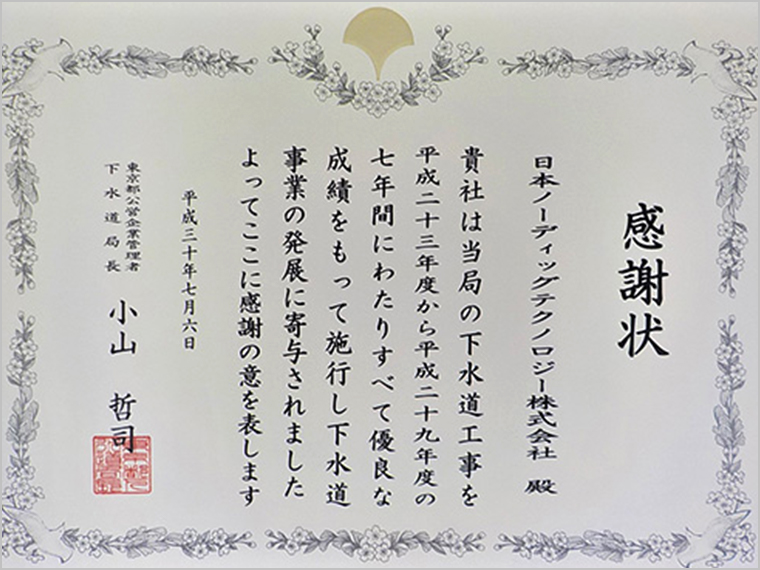 感謝状
日本ノーディッグテクノロジー株式会社 殿
貴社は当局の下水道工事を
平成二十三年度から平成二十九年度の
七年間にわたりすべて優良な
成績をもって施行し下水道
事業の発展に寄与されました
よってここに感謝の意を表します
平成三十年七月六日
東京都公営企業管理者
下水道局長 小山 哲司